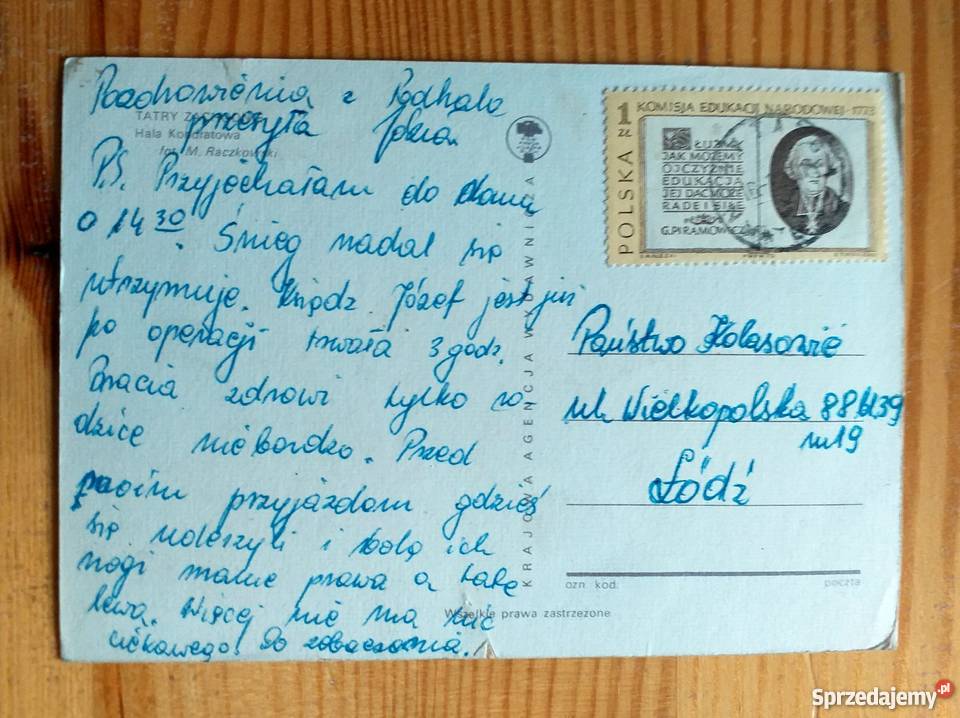 Pozdrowienia z Podhala
przesyła Józia
TATRY ZACHODNIE
Hala Kondratowa
fot. M. Raczkowski
P.S. Przyjechałam do domu
o 14 30. Śnieg nadal się
utrzymuje. Ksiądz Józef jest już
po operacji trwała 3 godz.
Bracia zdrowi tylko ro-
dzice nie bardzo. Przed
moim przyjazdem gdzieś
się należyli i bolą ich
nogi mamę prawa a tatę
lewa. Więcej nie ma nic
ciekawego. Do zobaczenia.
KRAJOWA AGENCJA WYDAWNICZA
Wszelkie prawa zastrzeżone
1 ZŁ
KOMISJA EDUKACJI NARODOWEJ - 1773
POLSKA
SŁUŻMY
JAK MOŻEMY
OJCZYZNIE
EDUKACJA
JEJ DAĆ MOŻE
RADE I SIŁE
G. PIRAMOWICZ
Państwo Kolasowie
ul. Wielkopolska 88 bl 39
m 19
Łódź
ozn. kod.
poczta
Sprzedajemy.pl